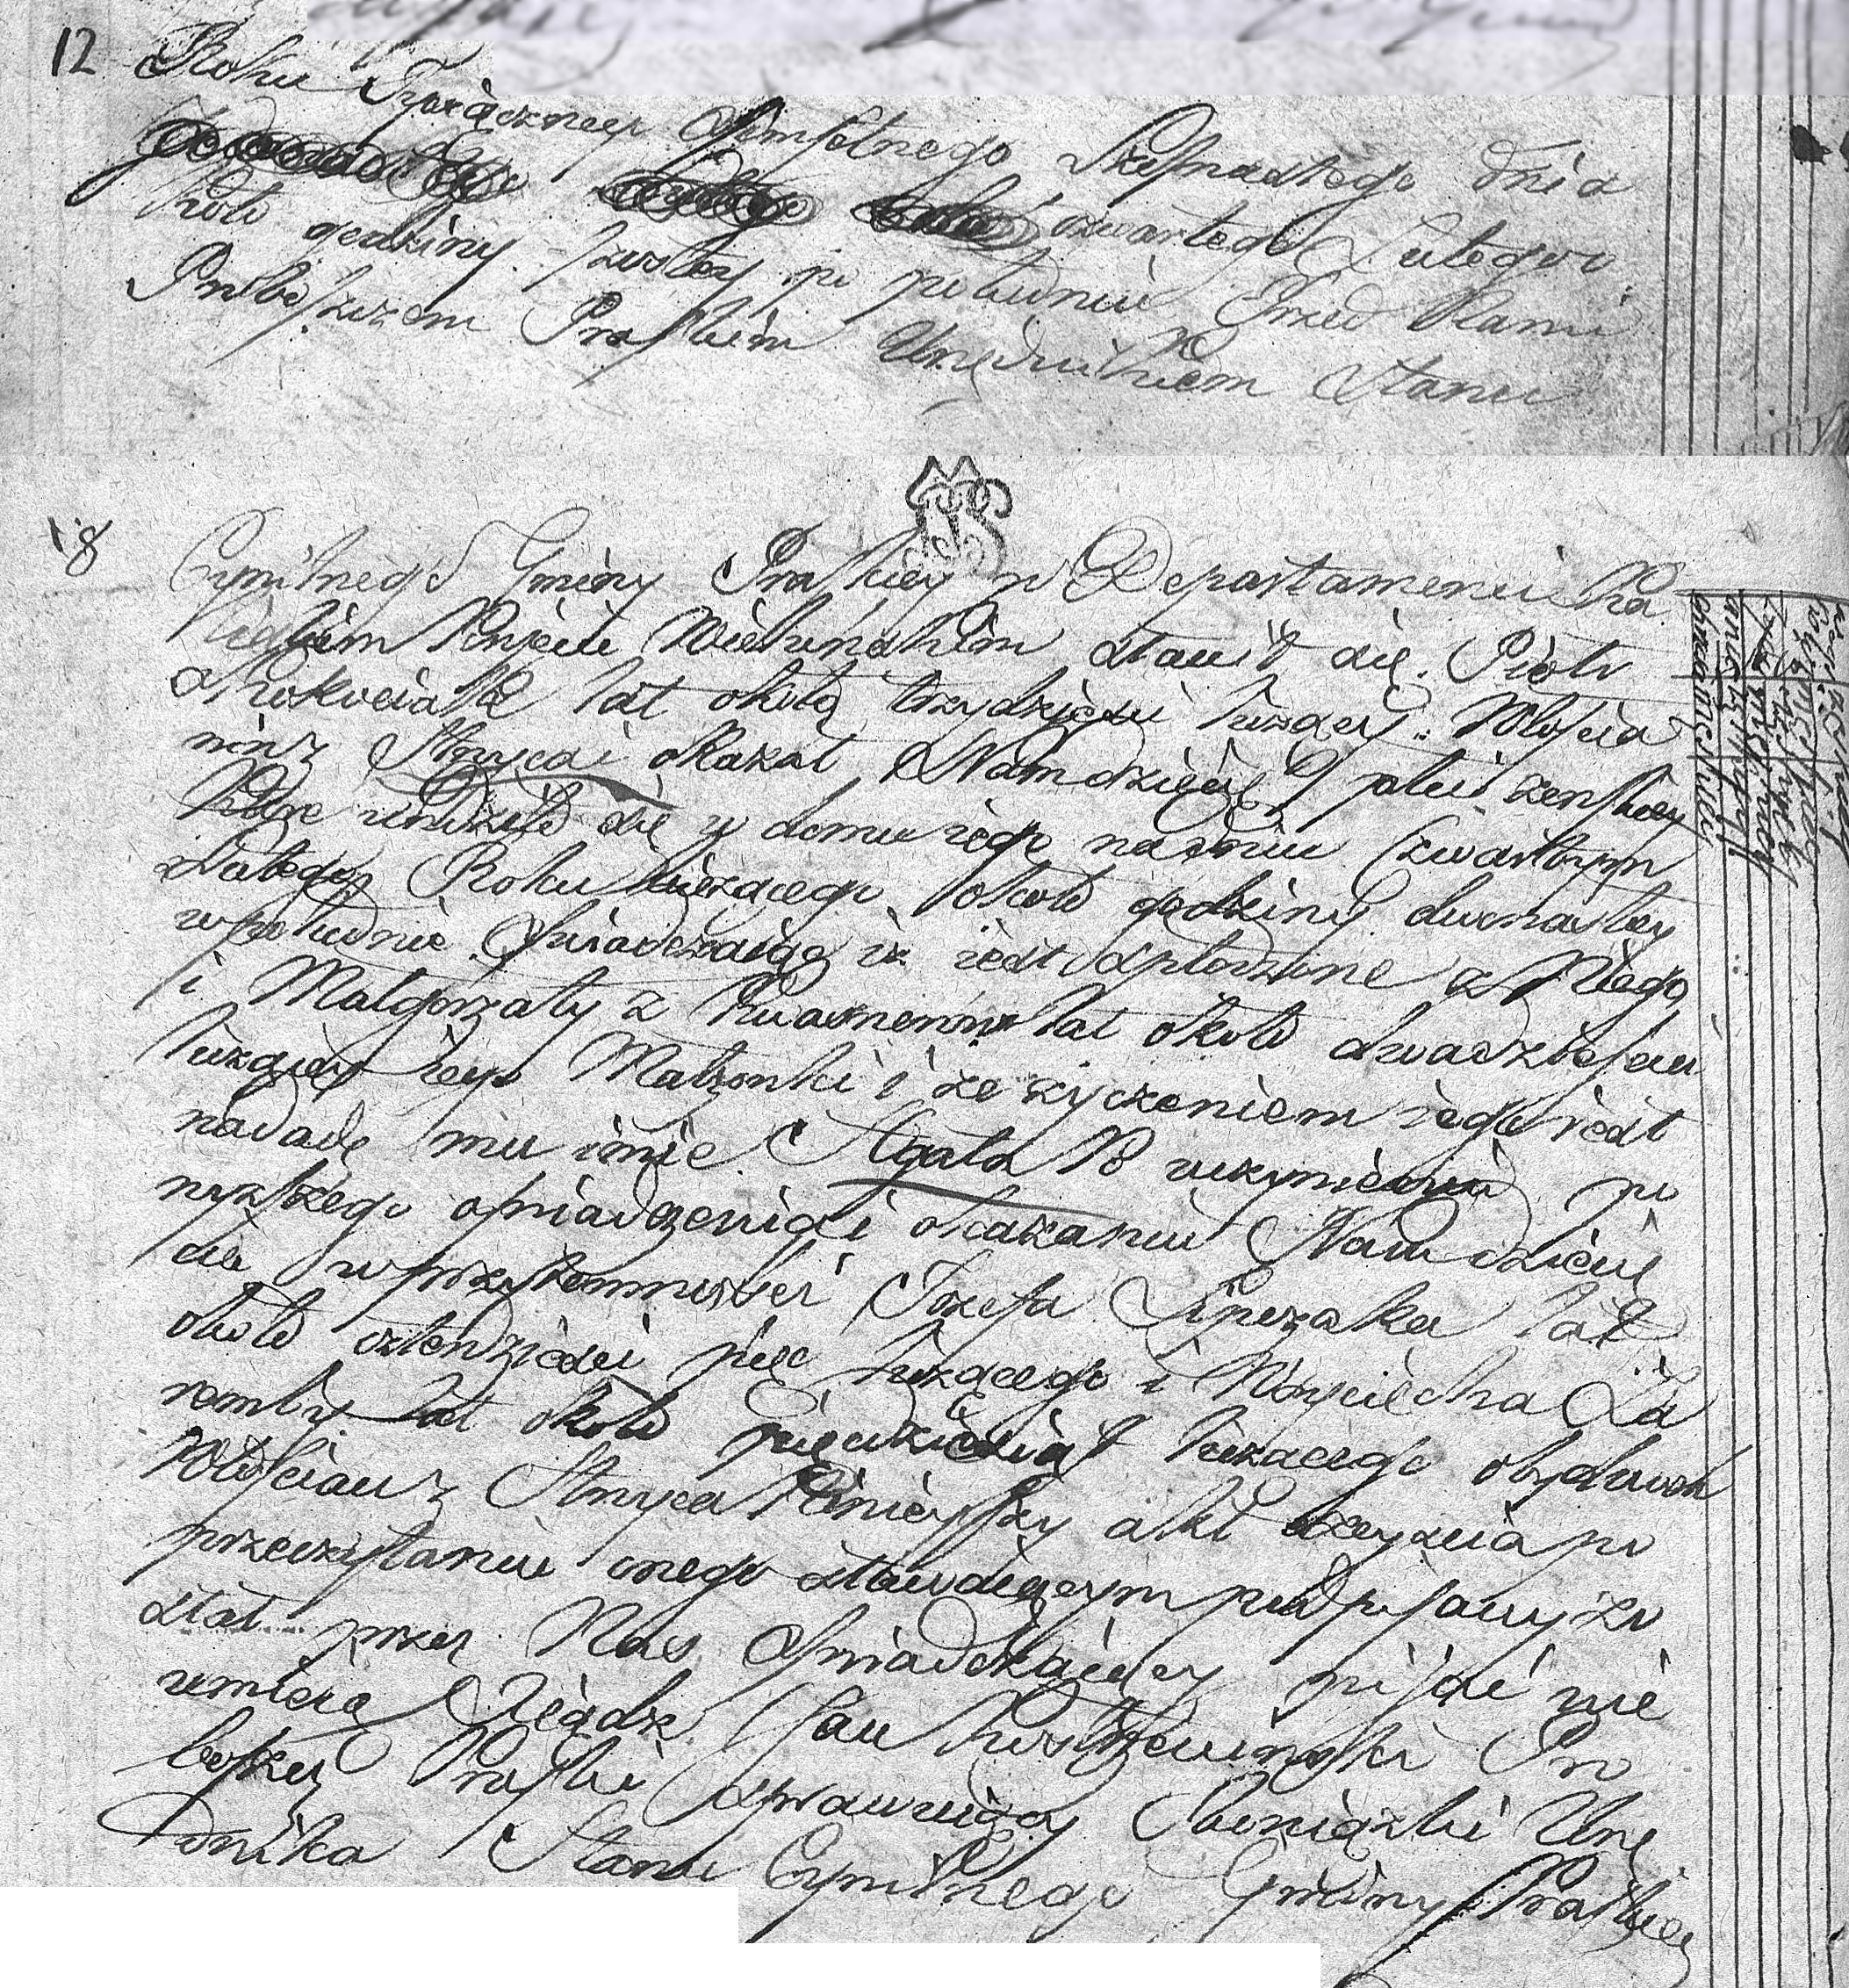 12 Roku Tysiącznego Osmsetnego Szesnastego dnia
czwartego Lutego o
koło godziny szostey po południu Przed Nami
Proboszczem Praskim Urzędnikiem Stanu
18
Cywilnego Gminy Praskiey w Departamencie Ka
liskim Powiecie Wieluńskim stawił się Piotr
Skokociak lat około trzydzieści liczący Włościa
nin z Stroyca i okazał Nam dziecię płci żenskiey
które urodziło się w domu iego na dniu czwartym
Lutego Roku bieżącego około godziny dwunastey
w południe Oświadczaiąc iż iest spłodzone z Niego
i Małgorzaty z lat około dwadzieścia
liczącey iego Małżonki i że życzeniem iego iest
nadadź mu imie Agata Po uczynieniu po
wyższego oświadczenia i okazaniu Nam dziecię
cia w przytomności Jozefa Lipczaka lat
około czterdzieści pięć liczącego i Woyciecha Za
remby lat około pięćdziesiąt liczącego obydwoch
Włościan z Stroyca Ninieyszy akt zeyścia po
przeczytaniu onego stawaiącym podpisany zo
stał przez Nas Oświadczaiący pisać nie
umieią Xiądz Jan Pro
boszcz Praski sprawuiący Obowiązki Urzę
dnika Stanu Cywilnego Gminy Praskiey